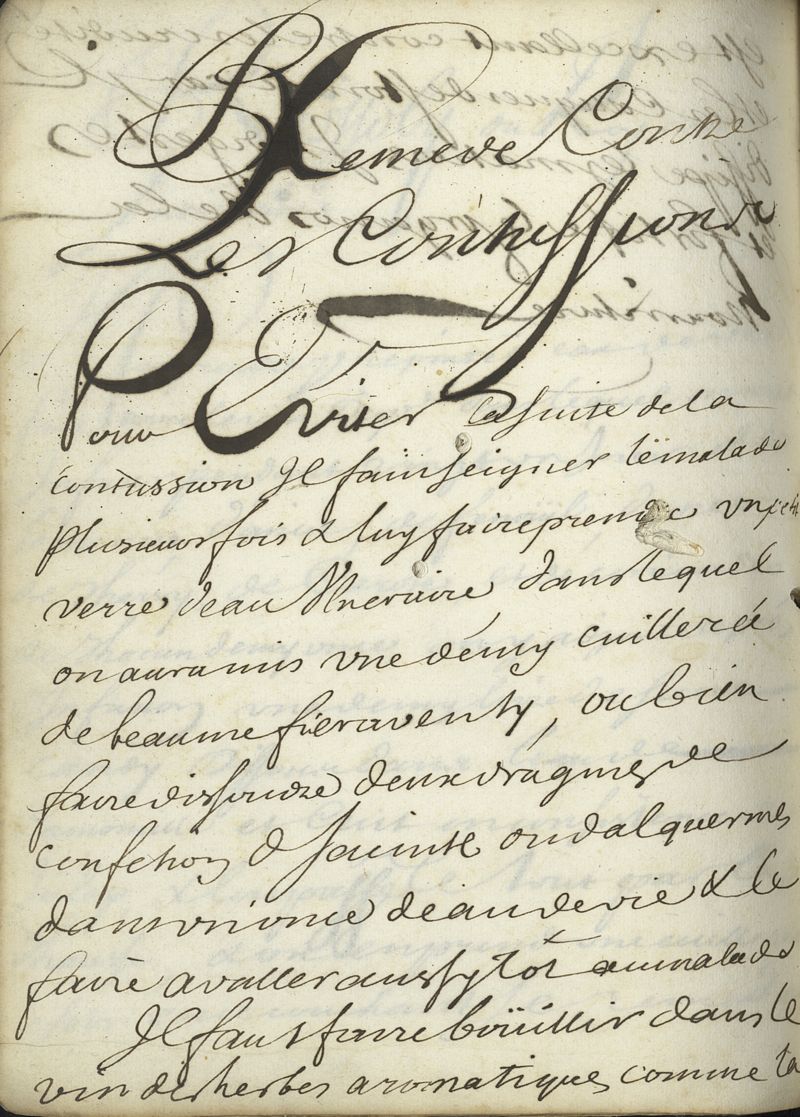 Remede Contre
Les Contussions
Pour Eviter la suite de la
contussion Il faut seigner le malade
plusieurs fois & luy faire prendre un petit
verre deau Vlneraire dans lequel
on aura mis vne demy cuillerée
de beaume fieraventy, ou bien
faire dissoudre deux dragmes de
confection d Jacinte ou dalquermes
dans vn once deau de vie & le
faire avaller aussytot au malade
Il faut faire boüillir dans le
vin des herbes aromatiques comme la